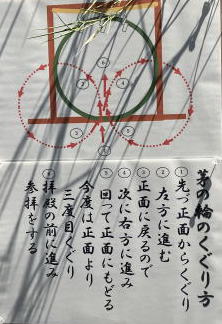 茅の輪のくぐり方
①先づ正面からくぐり
②左方に進む
③正面に戻るので
④次に右方に進み
⑤回って正面にもどる
今度は正面より
三度目くぐり
⑥拝殿の前に進み
参拝をする